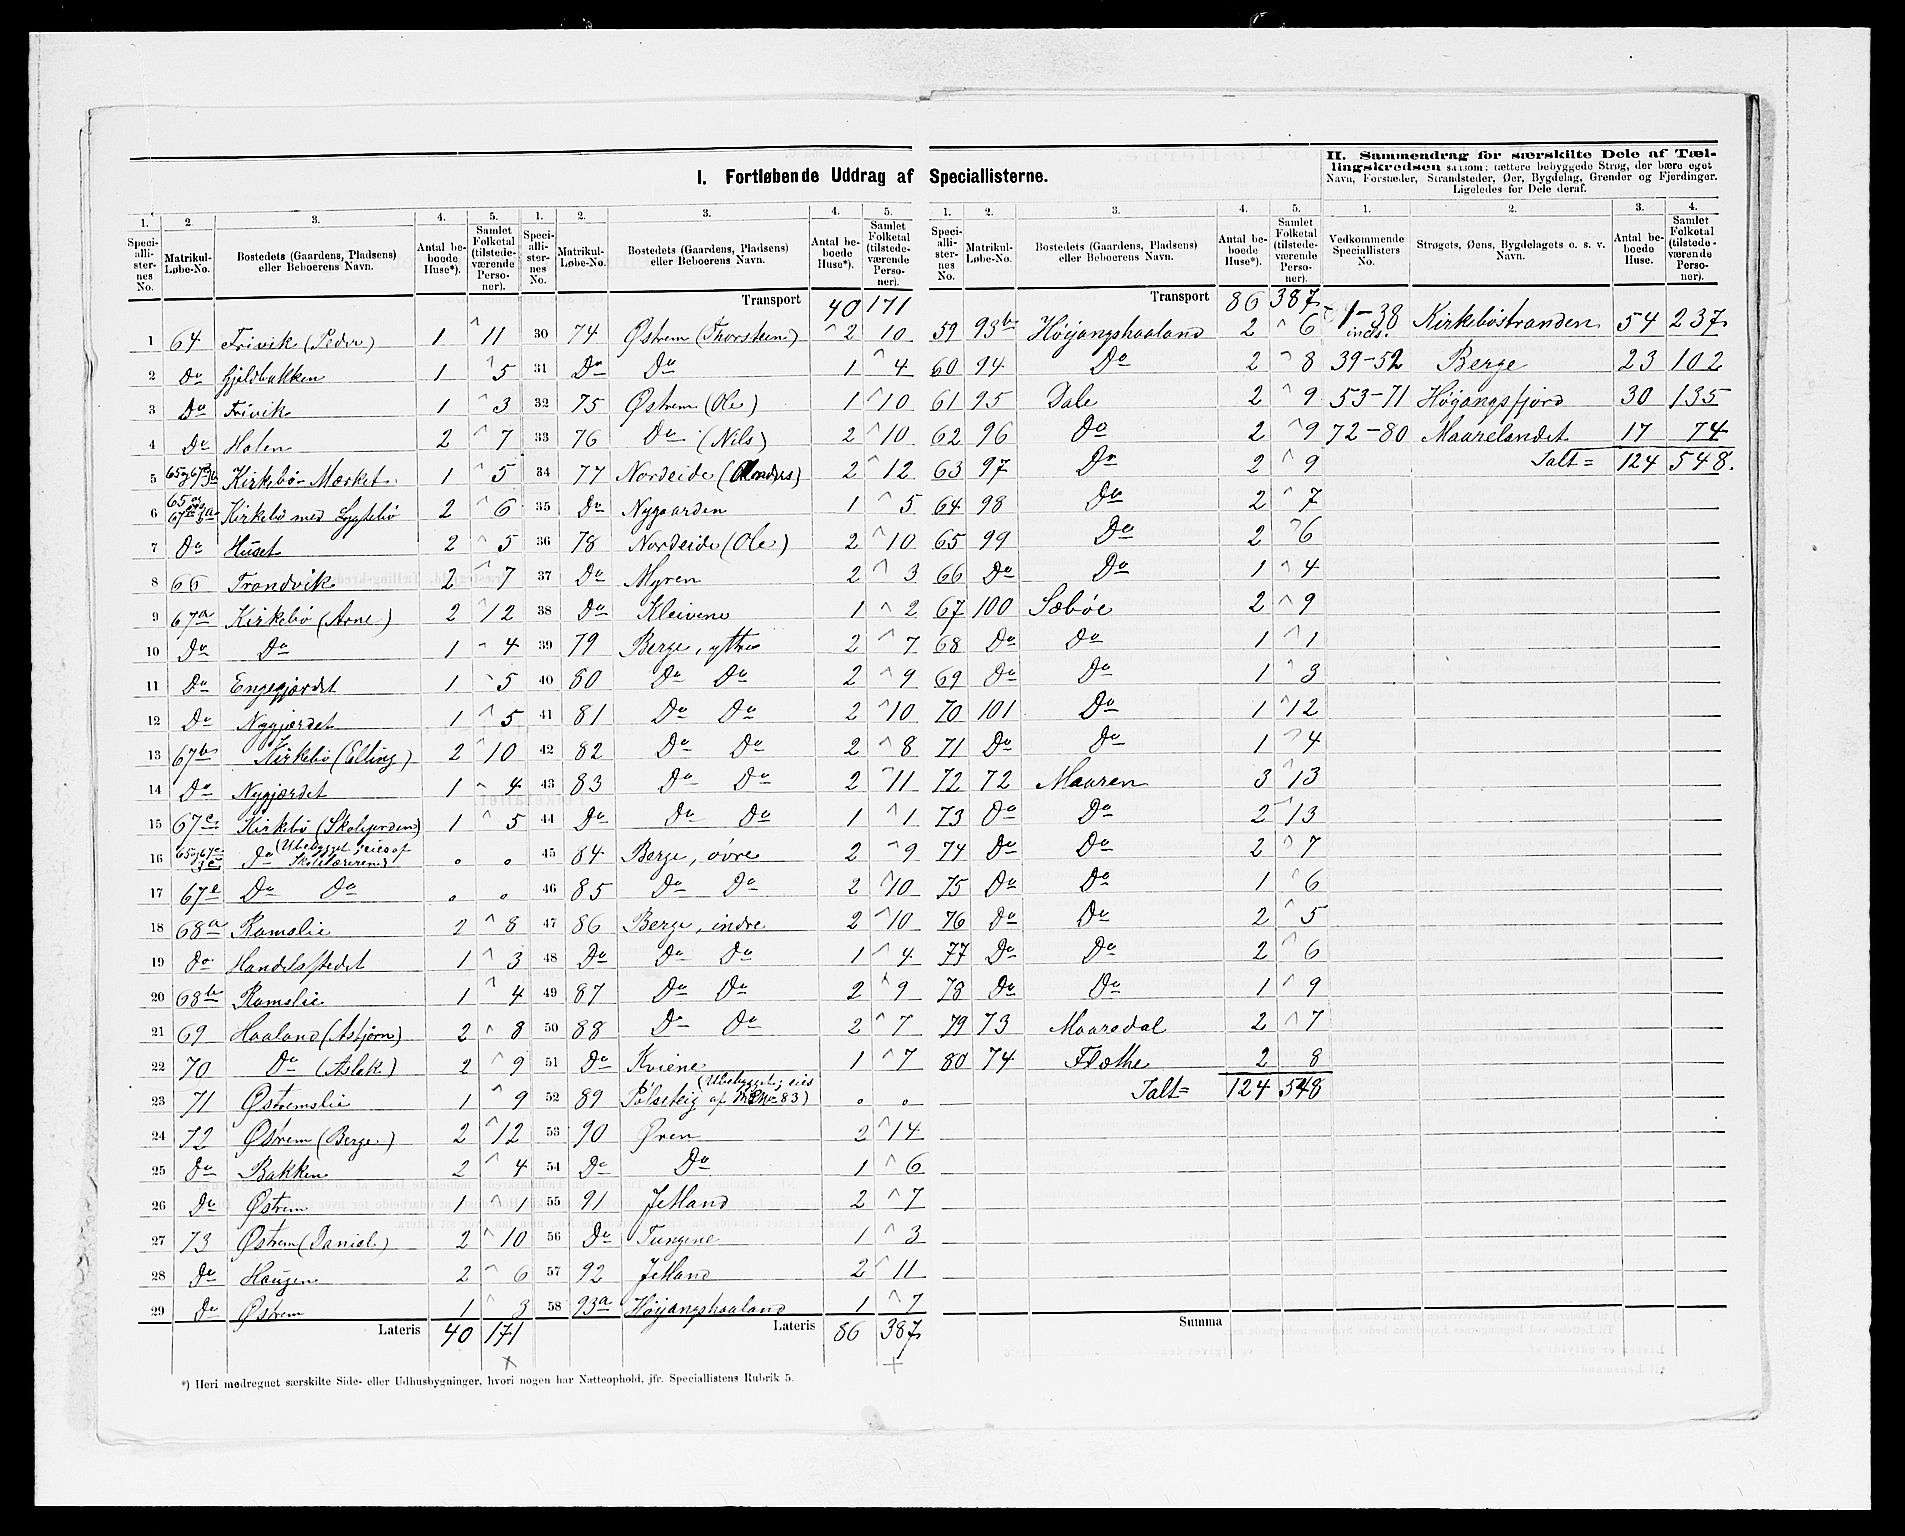 I. Fortløbende Uddrag af Speciallisterne.
II. Sammendrag for særskilte Dele af Tællingskredsen saasom: tættere bebyggede Strøg, der bære eget Navn, Forstæder, Strandsteder, Øer, Bygdelag, Grender og Fjerdinger. Ligeledes for Dele deraf.
1. 2. 3. 4. 5.
Speciallisternes No. Matrikul-Løbe-No. Bostedets (Gaardens, Pladsens) eller Beboerens Navn. Antal beboede Huse*). Samlet Folketal (tilstedeværende Personer).
1 64 Frivik (Peder) 1 11
2 Do Gjeldbakken 1 5
3 Do Frivik 1 3
4 Do Holen 2 7
5 Kirkebø-Mærket 1 5
6 Kirkebø med 2 6
7 Do Huset 2 5
8 66 Trondvik 2 7
9 67a Kirkebø (Arne) 2 12
10 Do Do 1 4
11 Do Engegjærdet 1 5
12 Do Nygjærdet 1 5
13 67b Kirkebø (Elling) 2 10
14 Do Nygjærdet 1 4
15 67c Kirkebø (Skolejorden) 1 5
16 Do (Ubebygget, eies af Skolelæreren) 0 0
17 67e Do Do 0 0
18 68a Ramslie 2 8
19 Do Handelsstedet 1 3
20 68b Ramslie 1 4
21 69 Haaland (Asbjørn) 2 8
22 70 Do (Aslak) 2 9
23 71 Østremslie 1 9
24 72 Østrem (Berge) 2 12
25 Do Bakken 2 4
26 Do Østrem 1 1
27 73 Østrem (Daniel) 2 10
28 Do Haugen 2 6
29 Do Østrem 1 3
Lateris 40 171
1. 2. 3. 4. 5.
Speciallisternes No. Matrikul-Løbe-No. Bostedets (Gaardens, Pladsens) eller Beboerens Navn. Antal beboede Huse*). Samlet Folketal (tilstedeværende Personer).
Transport 40 171
30 74 Østrem (Thorsteen) 2 10
31 Do Do 1 4
32 75 Østrem (Ole) 1 10
33 76 Do (Nils) 2 10
34 77 Nordeide (Anders) 2 12
35 Do Nygaarden 1 5
36 78 Nordeide (Ole) 2 10
37 Do Myren 2 3
38 Do Kleivene 1 2
39 79 Berge, yttre 2 7
40 80 Do Do 2 9
41 81 Do Do 2 10
42 82 Do Do 2 8
43 83 Do Do 2 11
44 Do Do Do 1 1
45 84 Berge, øvre 2 9
46 85 Do Do 2 10
47 86 Berge, indre 2 10
48 Do Do Do 1 4
49 87 Do Do 2 9
50 88 Do Do 2 7
51 Do Kviene 1 7
52 89 Pølseteig (Ubebygget; eies af M No 83) 0 0
53 90 Øren 2 14
54 Do Do 1 6
55 91 Jetland 2 7
56 Do Tungene 1 3
57 92 Jetland 2 11
58 93a Høyangshaaland 1 7
Lateris 86 387
1. 2. 3. 4. 5.
Speciallisternes No. Matrikul-Løbe-No. Bostedets (Gaardens, Pladsens) eller Beboerens Navn. Antal beboede Huse*). Samlet Folketal (tilstedeværende Personer).
Transport 86 387
59 93b Høyangshaaland 2 6
60 94 Do 2 8
61 95 Dale 2 9
62 96 Do 2 9
63 97 Do 2 9
64 98 Do 2 7
65 99 Do 2 6
66 Do Do 1 4
67 100 Sæbøe 2 9
68 Do Do 1 1
69 Do Do 1 3
70 101 Do 1 12
71 Do Do 1 4
72 72 Maaren 3 13
73 Do Do 2 13
74 Do Do 2 7
75 Do Do 1 6
76 Do Do 2 5
77 Do Do 2 6
78 Do Do 1 9
79 73 Maaredal 2 7
80 74 Fløthe 2 8
Ialt= 124 548
Summa
1. 2. 3. 4.
Vedkommende Speciallisters No. Strøgets, Øens, Bygdelagets o. s. v. Navn. Antal beboede Huse. Samlet Folketal (tilstedeværende Personer).
1-38 incls. Kirkebøstranden 54 237
39-52 Berge 23 102
53-71 Høyangsfjord 30 135
72-80 Maarelandet 17 74
Ialt= 124 548.
*) Heri medregnet særskilte Side- eller Udhusbygninger, hvori nogen har Natteophold, jfr. Speciallistens Rubrik 5.